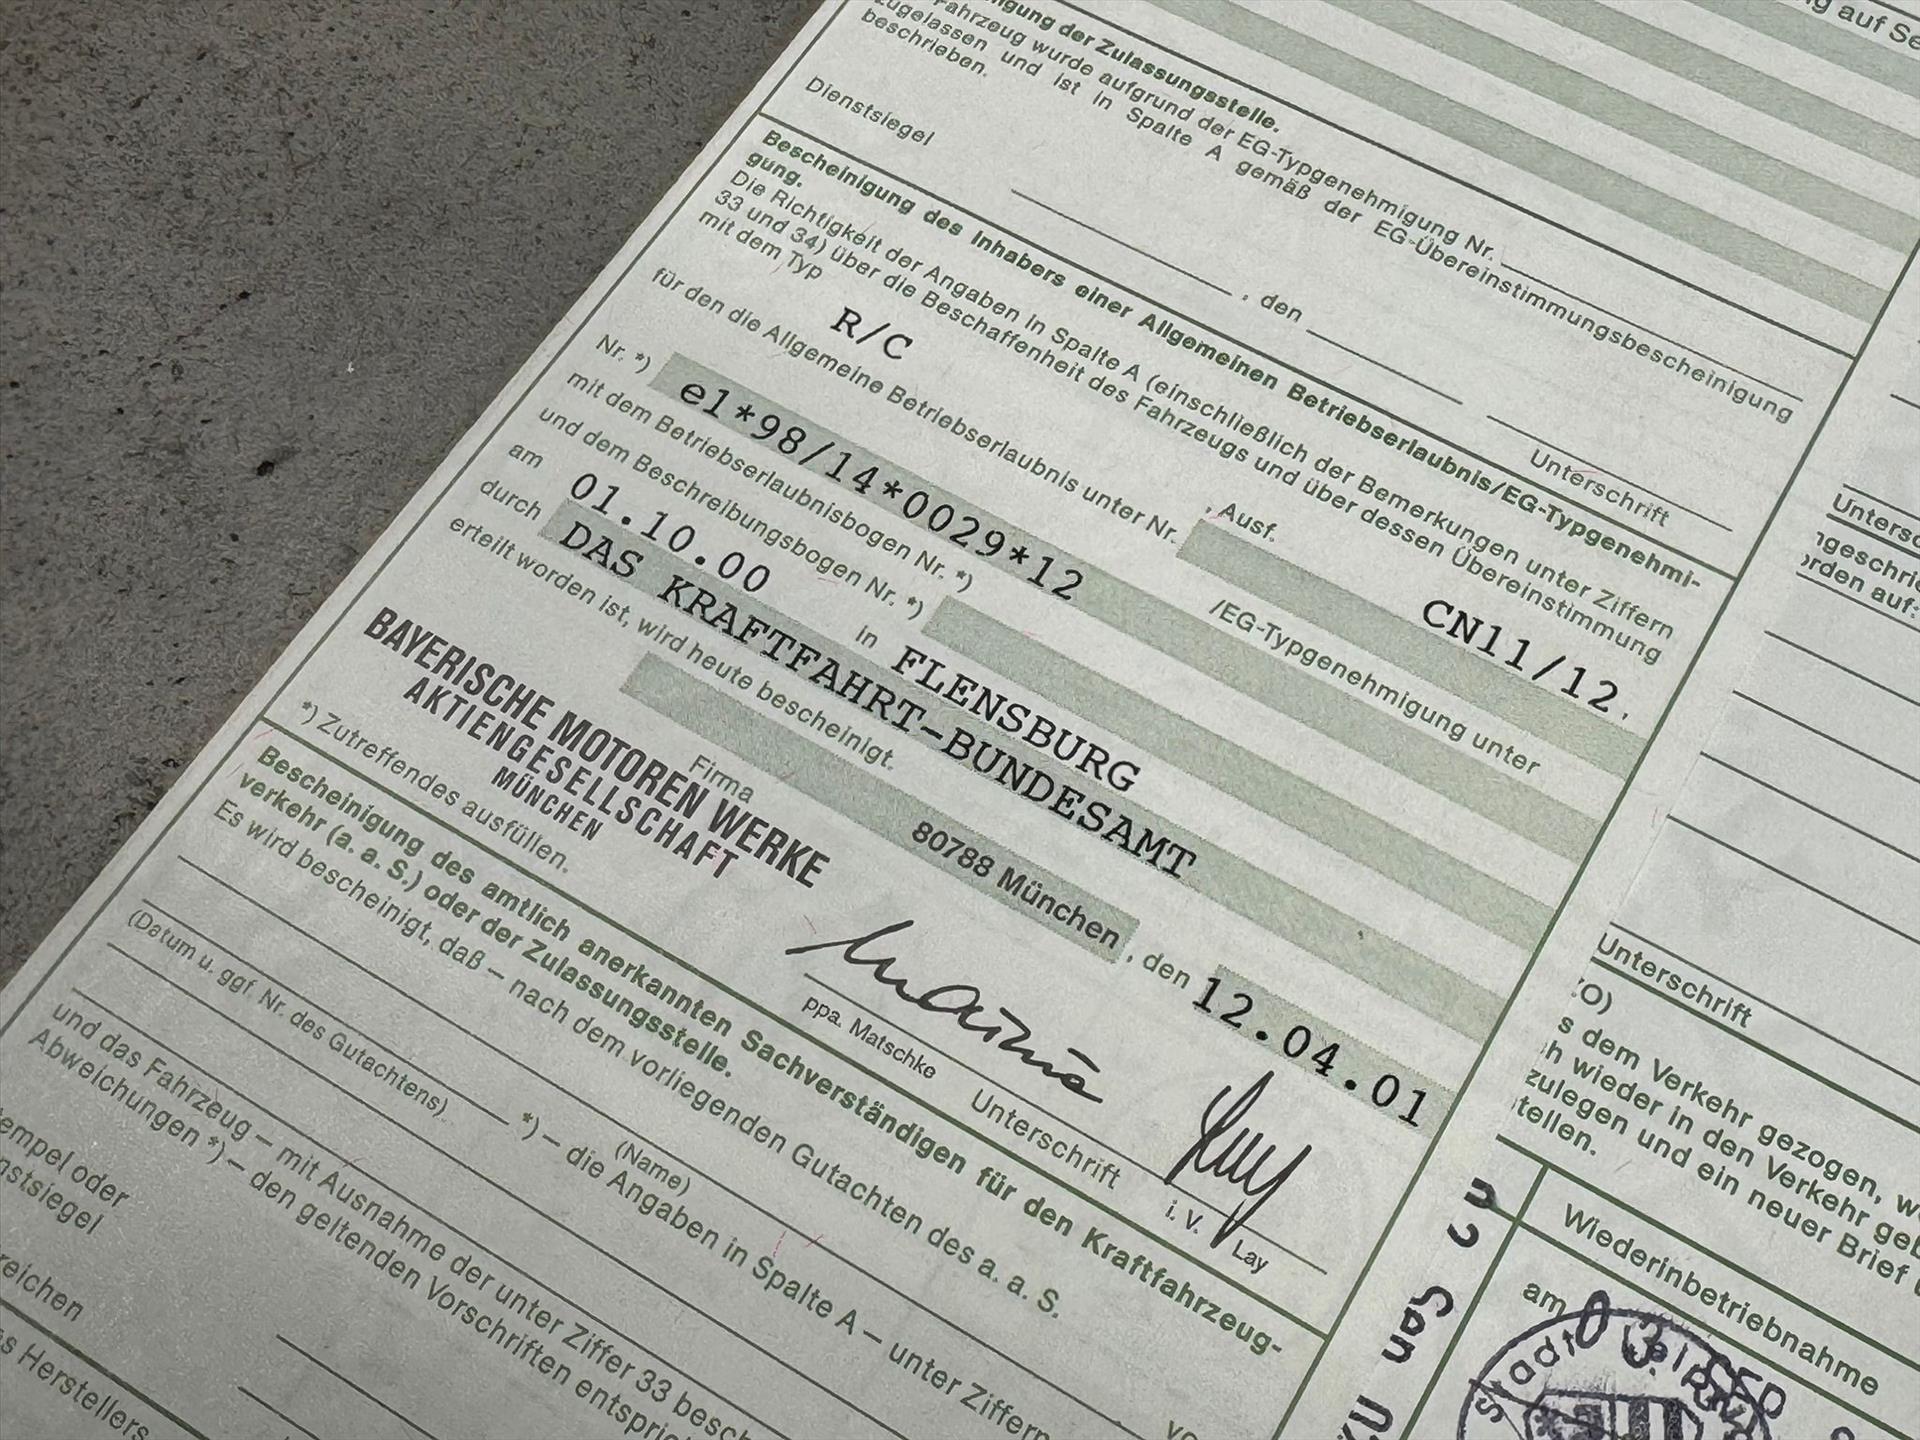 igung der Zulassungsstelle.
Fahrzeug wurde aufgrund der EG-Typgenehmigung Nr.
zugelassen und ist in Spalte A gemäß der EG-Übereinstimmungsbescheinigung
beschrieben.
Dienstsiegel
, den
Unterschrift
Bescheinigung des Inhabers einer Allgemeinen Betriebserlaubnis/EG-Typgenehmi-
gung.
Die Richtigkeit der Angaben in Spalte A (einschließlich der Bemerkungen unter Ziffern
33 und 34) über die Beschaffenheit des Fahrzeugs und über dessen Übereinstimmung
mit dem Typ R/C , Ausf. CN11/12,
für den die Allgemeine Betriebserlaubnis unter Nr. /EG-Typgenehmigung unter
Nr. *) e1*98/14*0029*12
mit dem Betriebserlaubnisbogen Nr. *)
und dem Beschreibungsbogen Nr. *)
am 01.10.00 in FLENSBURG
durch DAS KRAFTFAHRT-BUNDESAMT
erteilt worden ist, wird heute bescheinigt.
Firma 80788 München , den 12.04.01
BAYERISCHE MOTOREN WERKE
AKTIENGESELLSCHAFT
MÜNCHEN
ppa. Matschke Unterschrift i. V. Lay
*) Zutreffendes ausfüllen.
Bescheinigung des amtlich anerkannten Sachverständigen für den Kraftfahrzeug-
verkehr (a. a. S.) oder der Zulassungsstelle.
Es wird bescheinigt, daß – nach dem vorliegenden Gutachten des a. a. S.
(Name)
(Datum u. ggf. Nr. des Gutachtens) *) – die Angaben in Spalte A – unter Ziffern
und das Fahrzeug – mit Ausnahme der unter Ziffer 33 besch
Abweichungen *) – den geltenden Vorschriften entspri
empel oder
nstsiegel
reichen
s Herstellers
g auf Se
Untersc
ngeschri
orden auf:
Unterschrift
O)
s dem Verkehr gezogen, w
h wieder in den Verkehr geb
zulegen und ein neuer Brief
tellen.
Wiederinbetriebnahme
am 03. SEP
Stadt Leipzig